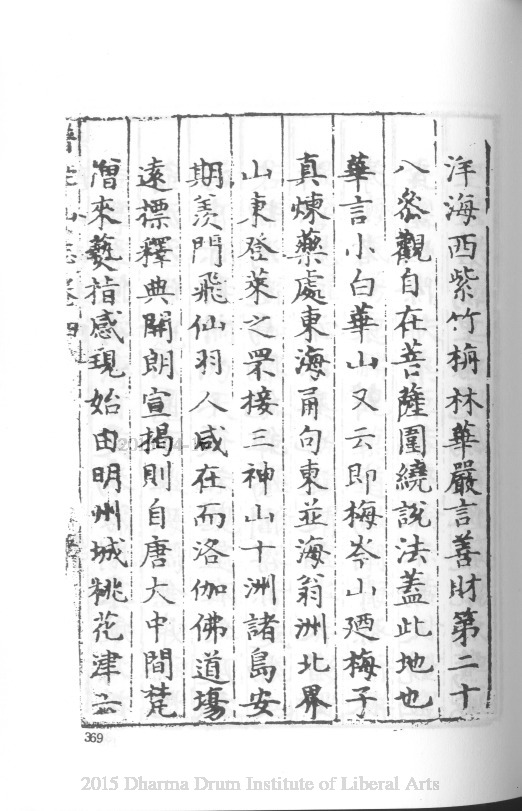 洋海西紫竹栴林華嚴言善財第二十
八叅觀自在菩薩圍繞說法蓋此地也
華言小白華山又云即梅岑山廼梅子
真煉藥處東海甬句東並海翁洲北界
山東登萊之界接三神山十洲諸島安
期羡門飛仙羽人咸在而洛伽佛道場
遠摽釋典開朗宣揭則自唐大中間梵
僧來爇指感現始由明州城桃花津
山志卷四
369
2015 Dharma Drum Institute of Liberal Arts